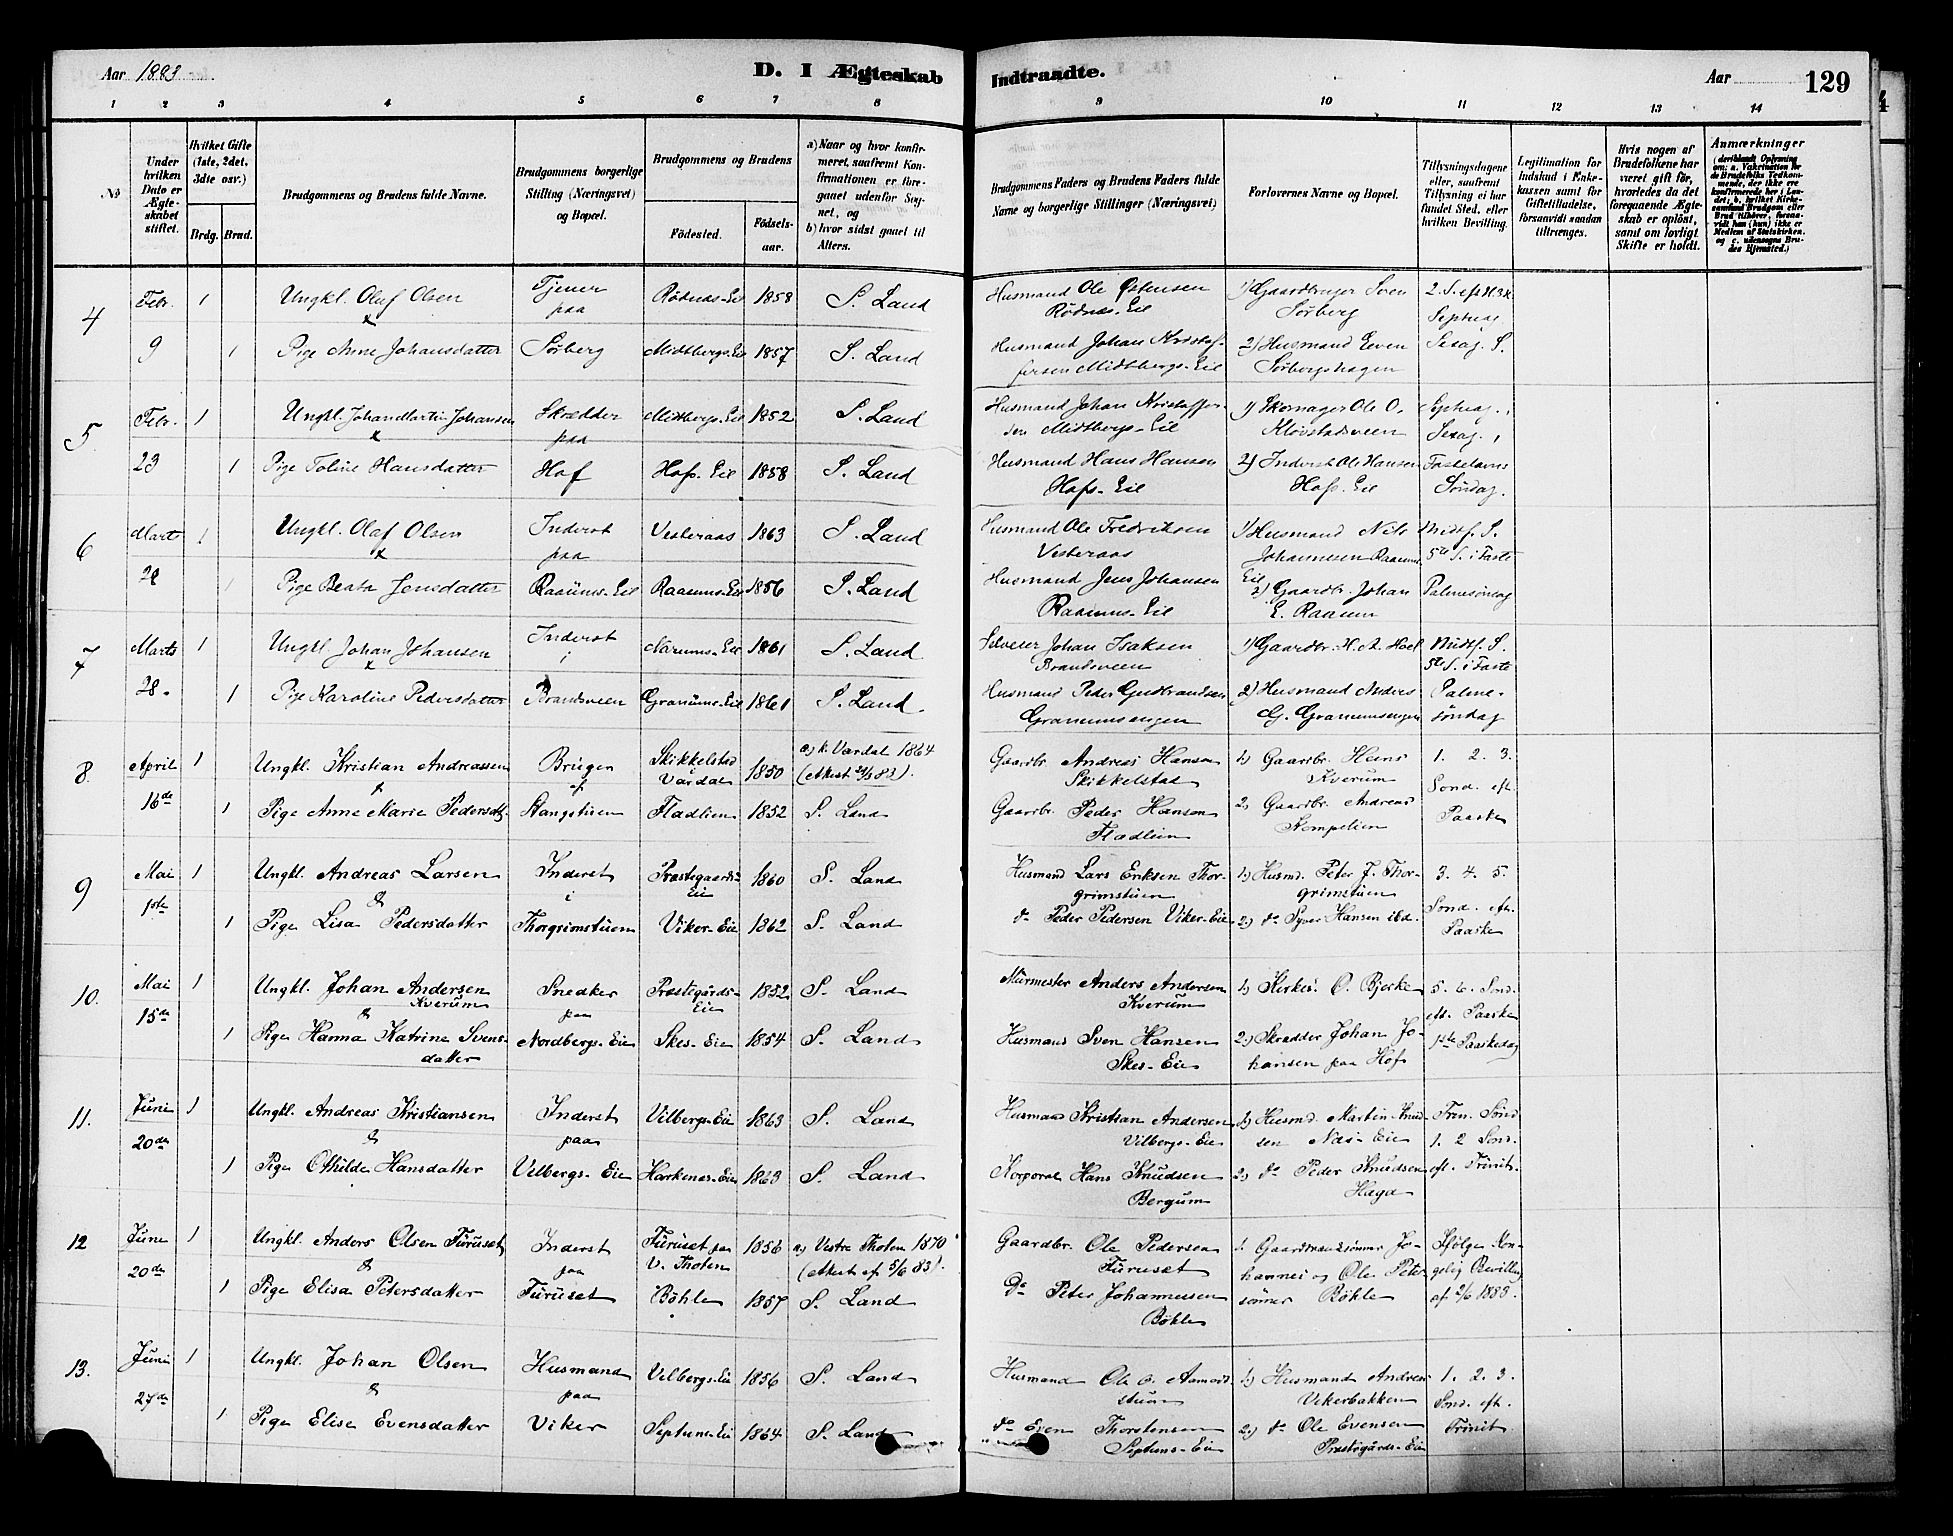 Aar 1883. D. I Ægteskab Indtraadte. Aar 129
1 2 3 4 5 6 7 8 9 10 11 12 13 14
No
Under hvilken Dato er Ægteskabet stiftet.
Hvilket Gifte (1ste, 2det, 3die osv.)
Brdg. Brud.
Brudgommens og Brudens fulde Navne.
Brudgommens borgerlige Stilling (Næringsvei) og Bopæl.
Brudgommens og Brudens
Fødested. Fødselsaar.
a) Naar og hvor konfirmeret, saafremt Konfirmationen er foregaaet udenfor Sognet, og
b) hvor sidst gaaet til Alters.
Brudgommens Faders og Brudens Faders fulde Navne og borgerlige Stillinger (Næringsvei)
Forlovernes Navne og Bopæl.
Tillysningsdagene eller, saafremt Tillysning ei har fundet Sted, efter hvilken Bevilling.
Legitimation for Indskud i Enkekassen samt for Giftetilladelse, forsaavidt saadan tiltrænges.
Hvis nogen af Brudefolkene har været gift før, hvorledes da det foregaaende Ægteskab er opløst, samt om lovligt Skifte er holdt.
Anmærkninger
4 Febr. 1 Ungkl. Olaf Olsen Tjener paa Rødnæs-Eie 1858 S. Land Husmand Ole Østensen Rødnæs-Eie 1) Gaardbruger Sven Sørberg 2. S. eft H3K Septuag
9 1 Pige Anne Johansdatter Sørberg Midtbergs-Eie 1857 S. Land Husmand Johan Kristoffersen Midtbergs-Eie 2) Husmand Even Sørbergshagen Sexag. S.
5 Febr. 1 Ungkl. Johan Martin Johansen Skrædder paa Midtbergs-Eie 1852 S. Land Husmand Johan Kristoffersen Midtbergs-Eie 1) Skomager Ole O. Kløvstadsveen Septuag.,
23 1 Pige Toline Hansdatter Hof Hofs-Eie 1858 S. Land Husmand Hans Hansen Hofs-Eie 2) Inderst Ole Hansen Hofs-Eie Sexag., Fastelavns Søndag.
6 Marts 1 Ungkl. Olaf Olsen Inderst paa Vesteraas 1863 S. Land Husmand Ole Fredriksen Vesteraas 1) Husmand Nils Johannesen Raaums Eie Midtf. S. 5te S. i Faste
28 1 Pige Beata Jensdatter Raaums-Eie Raaums-Eie 1856 S. Land Husmand Jens Johansen Raaums-Eie 2) Gaardbr. Johan E. Raaum Palmesøndag
7 Marts 1 Ungkl Johan Johansen Inderst i Narums-Eie 1861 S. Land Selveier Johan Isaksen Brandsveen 1) Gaardbr. H. A. Hoel Midtf. S. 5te S. i Faste
28. 1 Pige Karoline Pedersdatter Brandsveen Granums-Eie 1861 S. Land. Husmand Peder Gudbrandsen Granumsengen 2) Husmand Anders G. Granumsengen Palmesøndag
8. April 1 Ungkl. Kristian Andreassen & Bruger af Skikkelstad Vardal 1850 a) k. Vardal 1864 (Attest 21/3 83). Gaardbr. Andreas Hansen Skikkelstad 1) Gaardbr. Hans Kverum 1. 2. 3.
16de 1 Pige Anne Marie Pedersdtr. Stangstuen Fladlien 1852 S. Land Gaardbr. Peder Hansen Fladlien 2) Gaardbr. Andreas Stompelien Sond. eft. Paaske
9 Mai 1 Ungkl. Andreas Larsen & Inderst i Præstegaards-Eie 1860 S. Land Husmand Lars Eriksen Thorgrimstuen 1) Husmd. Peter J. Thorgrimstuen 3. 4. 5.
1ste 1 Pige Lisa Pedersdatter Thorgrimstuen Viker-Eie 1862 S. Land do Peder Pedersen Viker-Eie 2) do Syver Hansen ibd. Sond. eft. Paaske
10. Mai 1 Ungkl. Johan Andersen Kverum & Snedker paa Præstegårds-Eie 1852 S. Land Murmester Anders Andersen Kverum 1) Kirkes. O. Bjerke 5. 6. Sond. eft. Paaske
15de 1 Pige Hanna Katrine Svensdatter Nordbergs-Eie Skes-Eie 1854 S. Land Husmand Sven Hansen Skes-Eie 2) Skrædder Johan Johansen paa Hof 1ste Paaskedag
11. Juni 1 Ungkl. Andreas Kristiansen & Inderst paa Vilbergs-Eie 1863 S. Land Husmand Kristian Andersen Vilbergs-Eie 1) Husmd. Martin Knudsen Næs-Eie Tren. Sond 1. 2 Sond.
20de 1 Pige Othilde Hansdatter Velbergs-Eie Harkenæs-Eie 1863 S. Land Korporal Hans Knudsen Bergum 2) do Peder Knudsen Haga eft. Trinit.
12 June 1 Ungkl. Anders Olsen Furuset & Inderst paa Furuset paa V. Thoten 1856 a) Vestre Thoten 1870 (Attest af 5/6 83). Gaardbr. Ole Pedersen Furuset 1. Gaardmandssønner Johannes og Ole Petersønner Bøhle Ifølge Kongelig Bevilling af 2/6 1883.
20de 1 Pige Elisa Petersdatter Furuset Bøhle 1857 S. Land Do Peter Johannessen Bøhle
13. Juni 1 Ungkl. Johan Olsen & Husmand paa Velbergs-Eie 1856 S. Land Husmand Ole O. Aamodtstuen 1) Husmand Andreas Vikerbakken 1. 2. 3.
27de 1 Pige Elise Evensdatter Viker Septuns-Eie 1864 S. Land do Even Thorstensen Septuns-Eie 2) do Ole Evensen Præstegårds-Eie Sond. eft. Trinit.